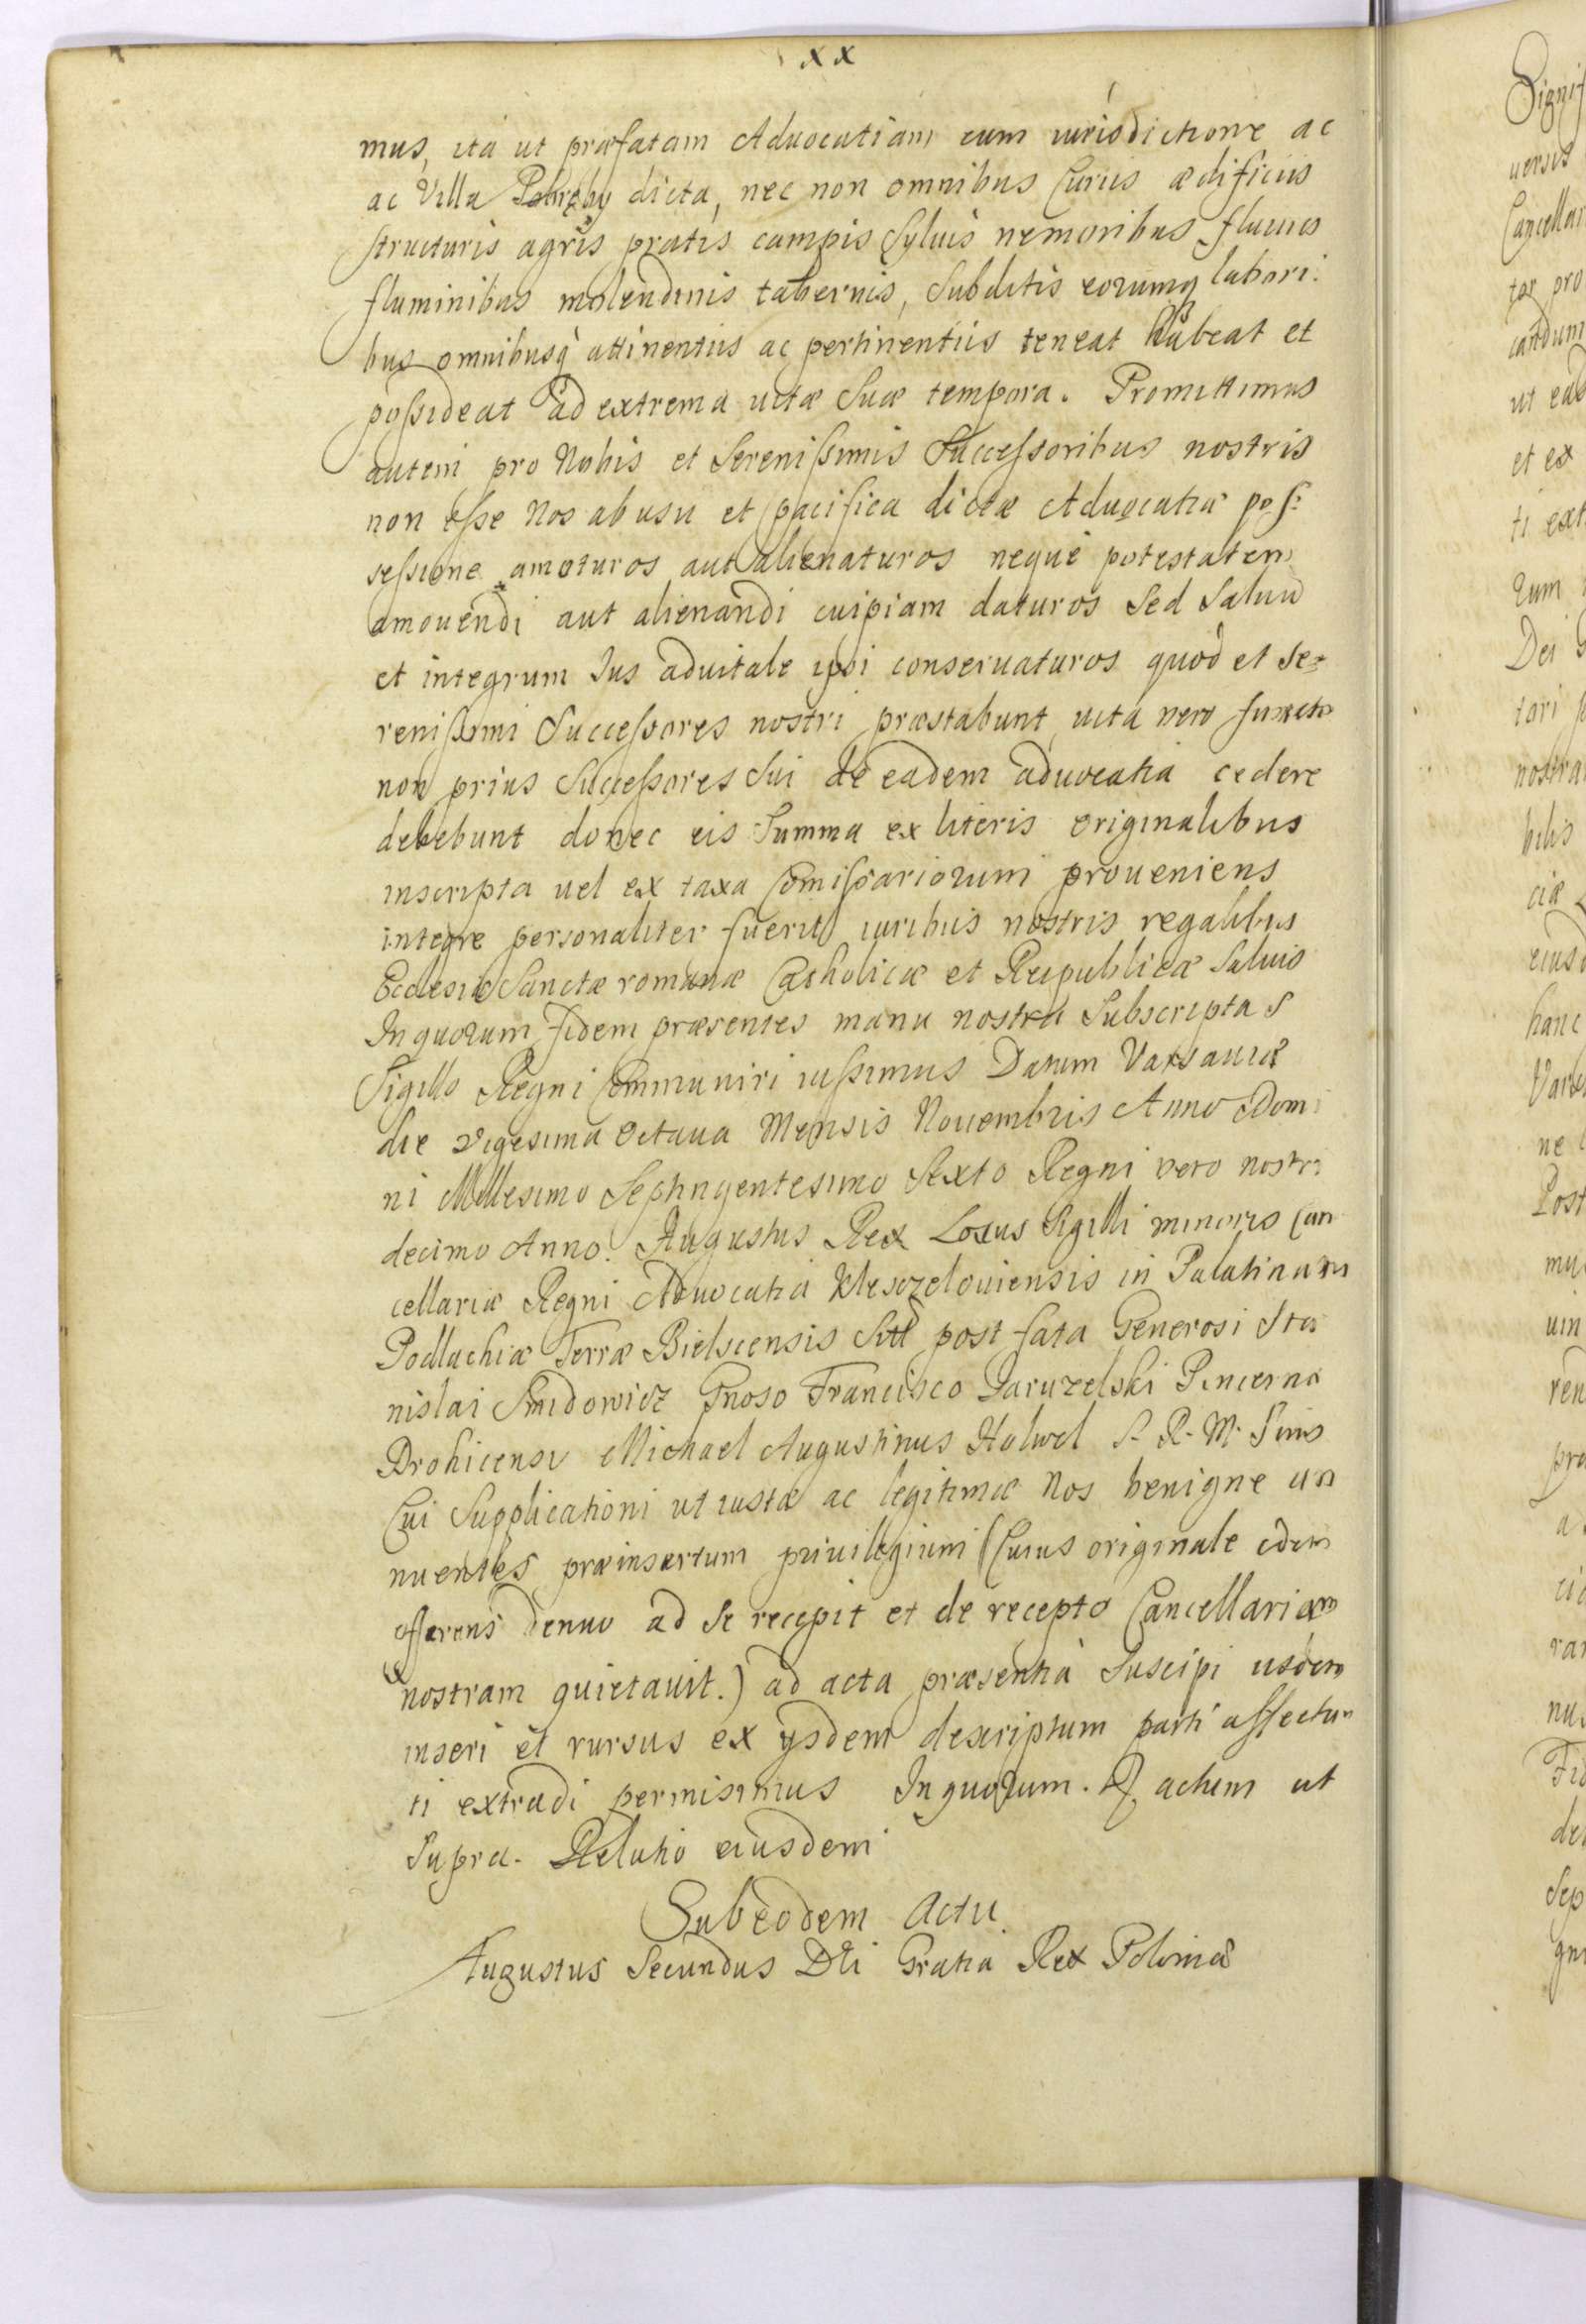 xx
mus, ita ut præfatam Aduocatiam cum iurisdictione ac
ac Villa dicta, nec non omnibus Curiis ædificiis
structuris agris pratis campis Syluis nemoribus fluuiis
fluminibus molendinis tabernis, Subditis eorumq labori:
bus omnibusq attinentiis ac pertinentiis teneat habeat et
possideat ad extrema uitæ Suæ tempora. Promittimus
autem pro Nobis et Serenissimis Successoribus nostris
non esse Nos ab usu et pacifica dictæ Aduocatiæ pos:
sessione amoturos aut alienaturos neque potestatem
amouendi aut alienandi cuipiam daturos Sed Saluu
et integrum Jus aduitale ipsi conseruaturos quod et Se=
renissimi Successores nostri præstabunt, uita uero functo
non prius Successores Sui de eadem aduocatia cedere
debebunt donec eis Summa ex literis originalibus
inscripta uel ex taxa Comissariorum proueniens
integre personaliter fuerit iuribus nostris regalibus
Ecclesiæ Sanctæ romanæ Catholicæ et Reipublicæ Saluis
In quorum fidem præsentes manu nostra Subscriptas
Sigillo Regni Communiri iussimus Datum Varsauiæ
die vigesima octaua Mensis Nouembris Anno Domi
ni Millesimo Septingentesimo Sexto Regni vero nostri
decimo Anno. Augustus Rex Locus Sigilli minoris Can
cellariæ Regni Aduocatia Klesczelouiensis in Palatinatu
Podlachiæ Terræ Bielscensis post fata Generosi Sta
nislai Smidowicz Gnoso Francisco Jaruzelski Pincernæ
Drohicensi Michael Augustinus Holwel S. R. M.
Cui Supplicationi ut iustæ ac legitimæ Nos benigne an
nuentes præinsertum priuilegium (Cuius originale idem
offerens denuo ad Se recepit et de recepto Cancellariam
nostram quietauit.) ad acta præsentia Suscipi usdem
inseri et rursus ex ijsdem descriptum parti affectan
ti extradi permisimus In quorum. actum ut
Supra. Relatio eiusdem
Sub eodem Actu
Augustus Secundus DEi Gratia Rex Poloniæ